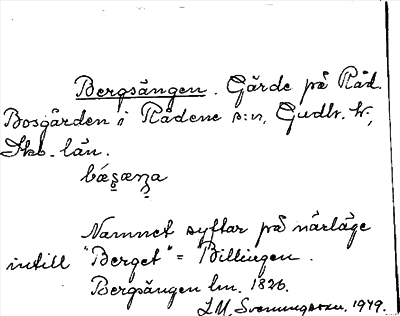 Bergsängen. Gärde på Råd.
Bosgården i Rådene s:n, Gudh. h:,
Skb. län.
Namnet syftar på närläge
intill "Berget" = Billingen.
Bergsängen lm. 1826.
L M Svenungsson, 1949.